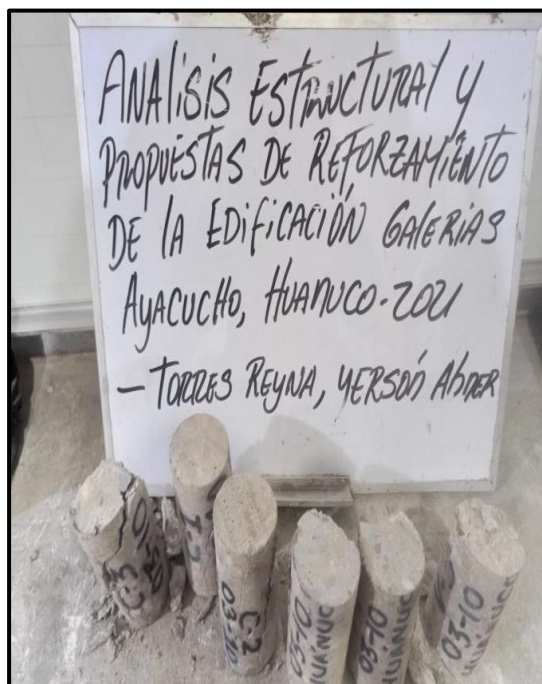 ANALISIS ESTRUCTURAL Y
PROPUESTAS DE REFORZAMIENTO
DE LA EDIFICACIÓN GALERIAS
AYACUCHO, HUANUCO-2021
- TORRES REYNA, YERSON ABNER
C-2
03-10
03-10
HUÁNUCO
03-10
HUÁNUCO
03-10
HUÁNUCO